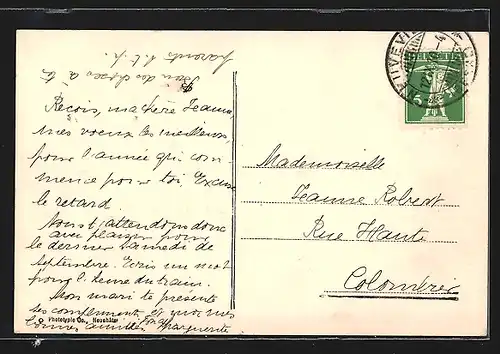 Bien des choses à tes
parents s.t.p.
Reçois, ma chère Jeanne,
mes voeux les meilleurs
pour l'année qui com-
mence pour toi. Excuse
le retard.
Nous t'attendons donc
avec plaisir pour
le dernier samedi de
septembre. Ecris un mot
pour l'heure du train.
Mon mari te présente
ses compliments et moi mes
bonnes amitiés. Marguerite
Phototypie Co., Neuchâtel
HELVETIA
5
NEUVEVILLE
Mademoiselle
Jeanne Robert
Rue Haute
Colombier